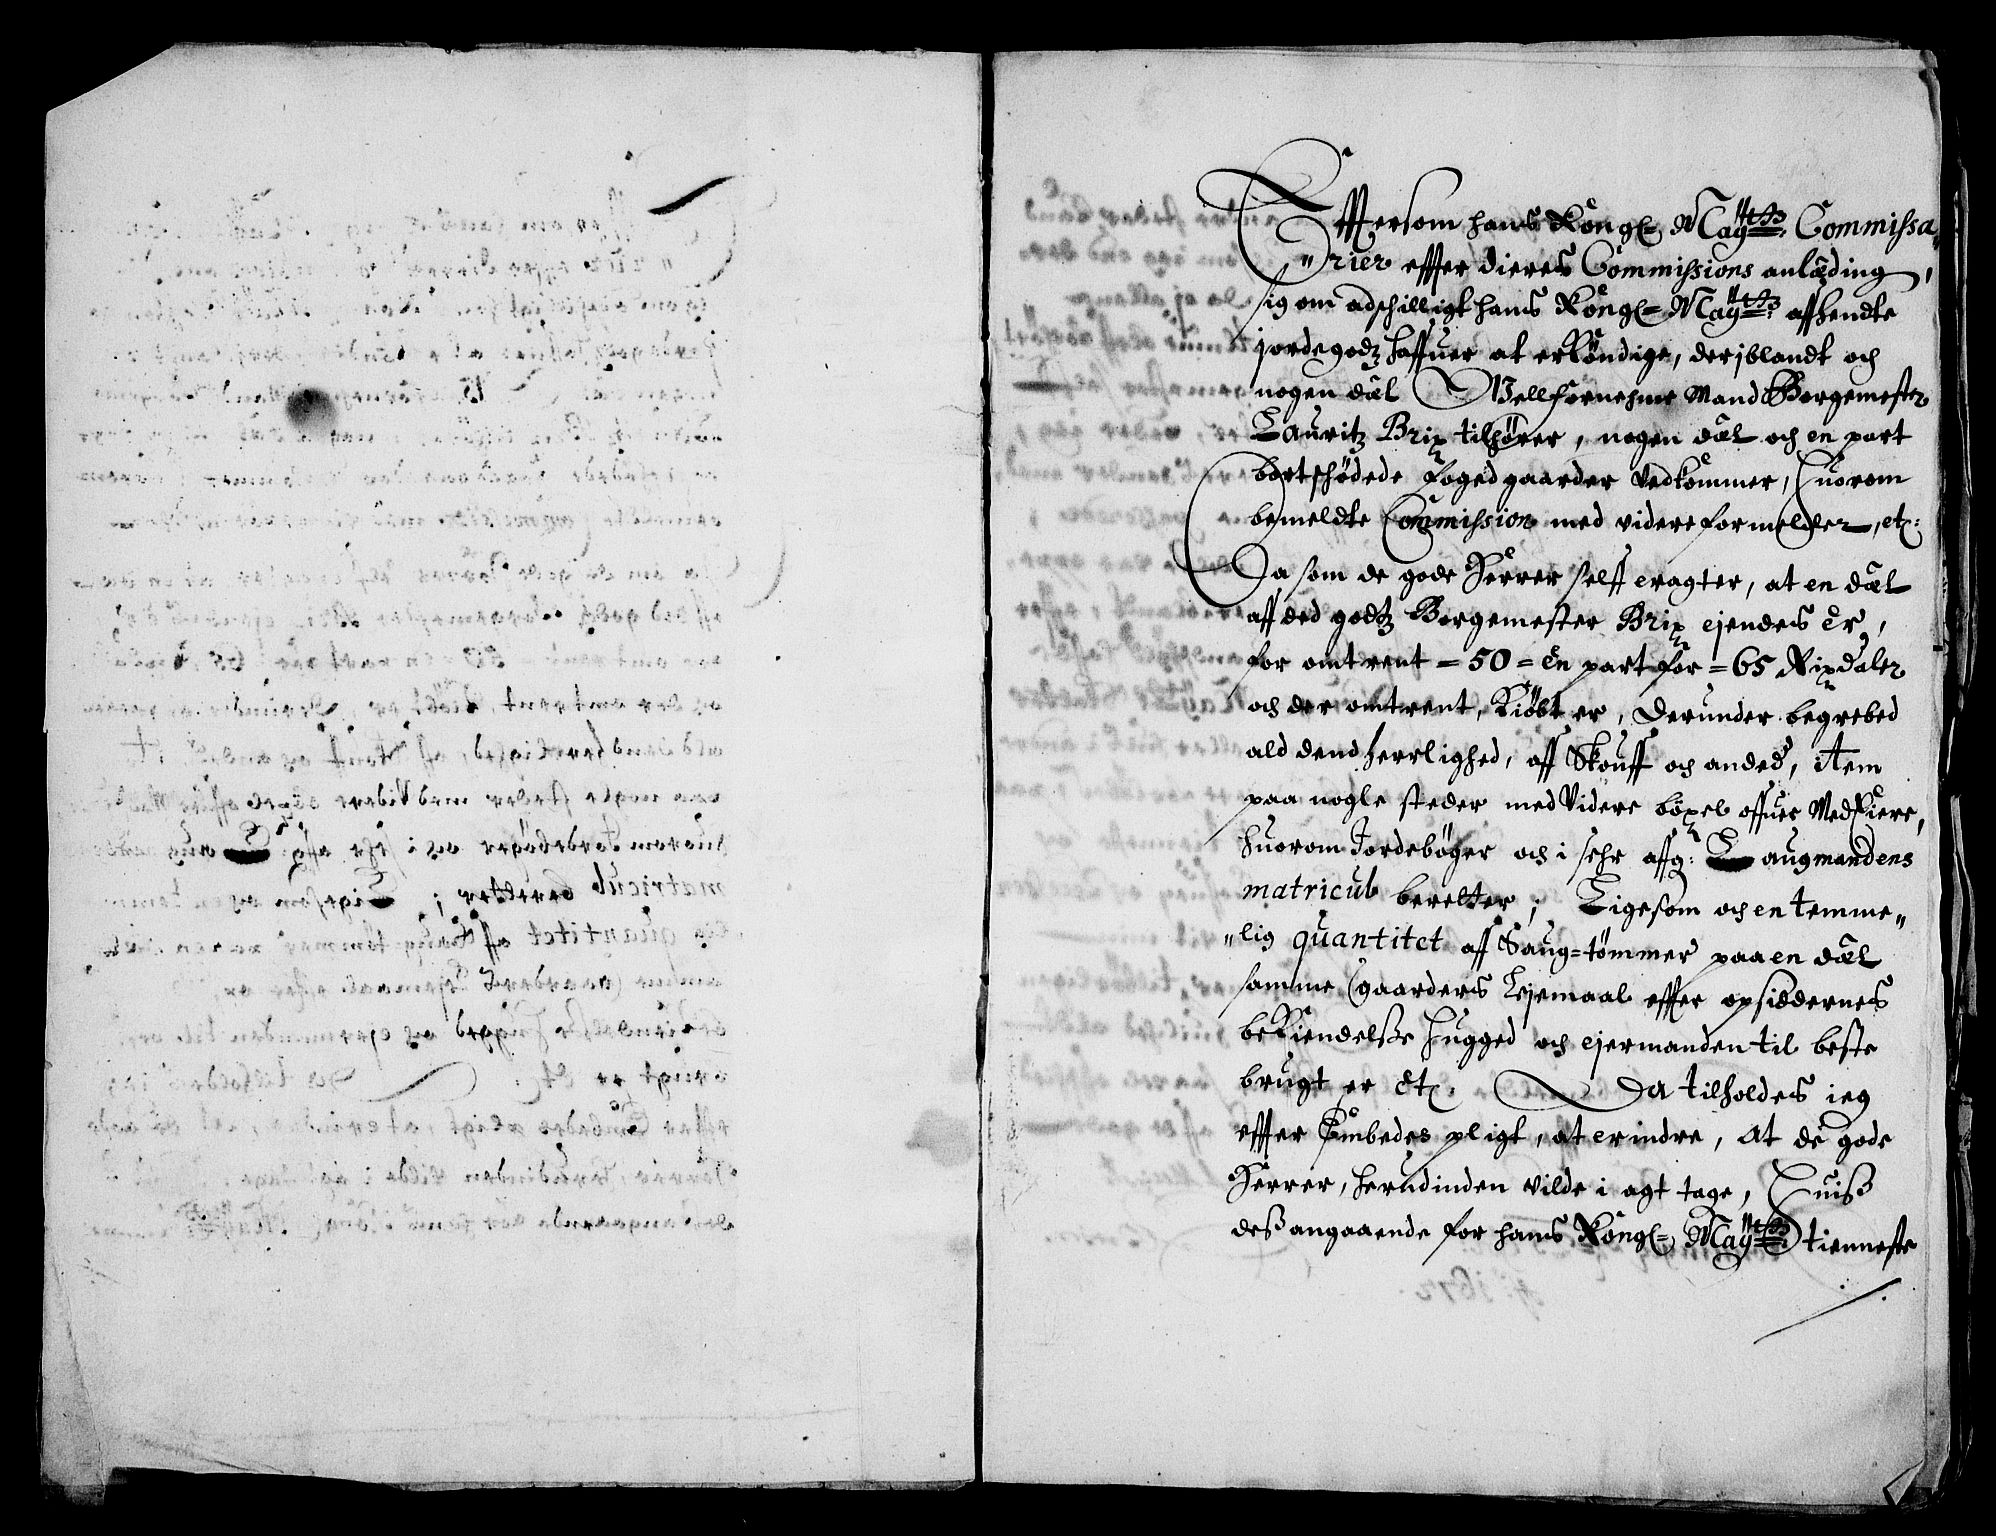 Effersom hans Kongl= Mayttz: Commissa„
„rier effter dieres Commissions anlæding,
sig om adschilligt hans Kongl= Mayttz: affhendte
jordegodz haffuer at erköndige, der jblandt och
nogen dæl Vellfornehme Mand Borgemester
Lauritz Brix tilhører, nogen dæl och en part
bortschödede foged gaarder vedkommer, huorom
bemeldte Commission med videre formelder, etc:
Da som de gode Herrer self eragter, at en dæl
aff ded godtz Borgemester Brix ejendes er,
for omtrent = 50 = en part for = 65 Rixdaler
och der omtrent, Kiöbt er, derunder begrebed
ald dend herrlighed, aff Skouff och anded, item
paa nogle steder med videre böxel offuer Medkiere,
huorom Jordebøger och i sehr affg: Laugmandens
matricul beretter; Ligesom och en temme„
„lig quantitet aff Saug=tömmer paa en dæl
samme gaarders Lejemaal effter opsiddernes
bekiendelsse hugged och ejermanden til beste
brugt er etc. Da tilholdes ieg
effter Embedes pligt, at erindre, at de gode
Herrer, herudinden vilde i agt tage, huiss
dess angaaende for hans Kongl= Mayttz: tienneste